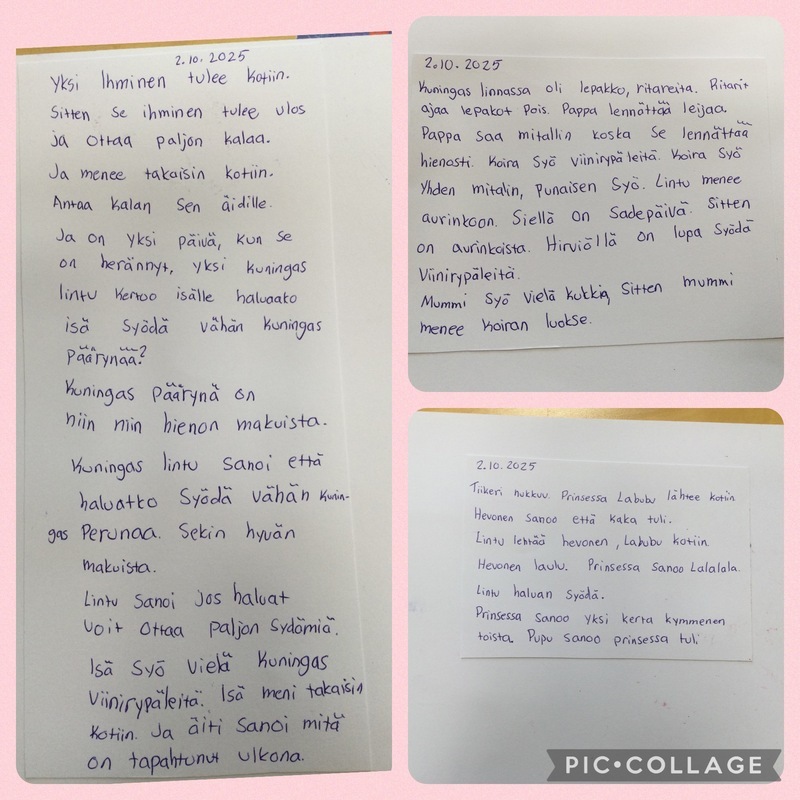 2.10.2025
Yksi Ihminen tulee kotiin.
Sitten se ihminen tulee ulos
ja ottaa paljon kalaa.
Ja menee takaisin kotiin.
Antaa kalan sen äidille.
Ja on yksi päivä, kun se
on herännyt, yksi kuningas
lintu kertoo isälle haluaako
isä syödä vähän kuningas
päärynää?
Kuningas päärynä on
niin niin hienon makuista.
Kuningas lintu sanoi että
haluatko syödä vähän kunin-
gas perunaa. Sekin hyvän
makuista.
Lintu sanoi jos haluat
voit ottaa paljon sydömiä.
Isä syö vielä kuningas
viinirypäleitä. Isä meni takaisin
kotiin. Ja äiti sanoi mitä
on tapahtunut ulkona.
2.10.2025
Kuningas linnassa oli lepakko, ritareita. Ritarit
ajaa lepakot pois. Pappa lennättää leijaa.
Pappa saa mitallin koska se lennättää
hienosti. Koira syö viinirypäleitä. Koira syö
yhden mitalin, punaisen syö. Lintu menee
aurinkoon. Siellä on sadepäivä. Sitten
on aurinkoista. Hirviöllä on lupa syödä
viinirypäleitä.
Mummi syö vielä kukkia, sitten mummi
menee koiran luokse.
2.10.2025
Tiikeri nukkuu. Prinsessa Labubu lähtee kotiin
Hevonen sanoo että kaka tuli.
Lintu lentää hevonen, Labubu kotiin.
Hevonen laulu. Prinsessa sanoo Lalalala.
Lintu haluan syödä.
Prinsessa sanoo yksi kerta kymmenen
toista. Pupu sanoo prinsessa tuli
PIC•COLLAGE